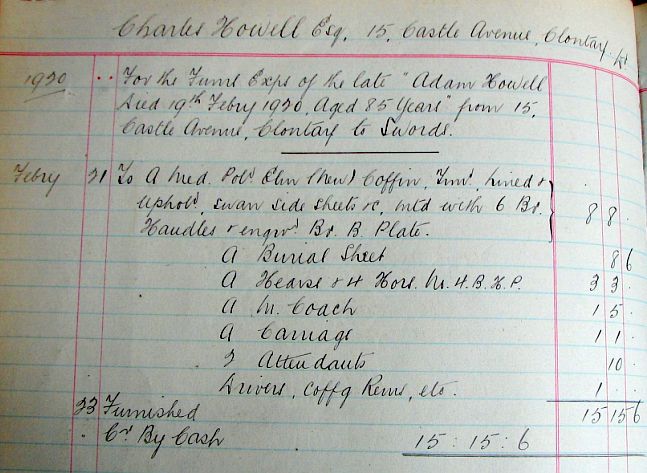 Charles Howell Esq, 15, Castle Avenue, Clontarf
1920 .. For the Funl Exps of the late "Adam Howell
Died 19th Febry 1920, Aged 85 Years" from 15,
Castle Avenue, Clontarf to Swords.
Febry 21 To A Med. Pold Elm (New) Coffin, Timd, Lined &
Uphold, swan side sheets &c, Mtd with 6 Br.
Handles & engrd Br. B. Plate. 8 8 .
A Burial Sheet 8 6
A Hearse & 4 Hors. M. 4. B. H. P. 3 3 .
A M. Coach 1 5 .
A Carriage 1 1 .
2 Attendants 10 .
Drivers, Coffg Rems, etc. 1 . .
23 Furnished 15 15 6
. Cr By Cash 15 : 15 : 6